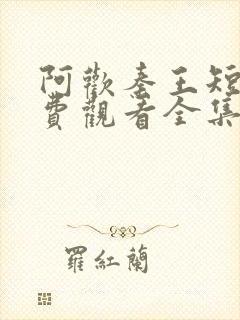 阿歡秦王短
費觀看全集
羅紅蘭